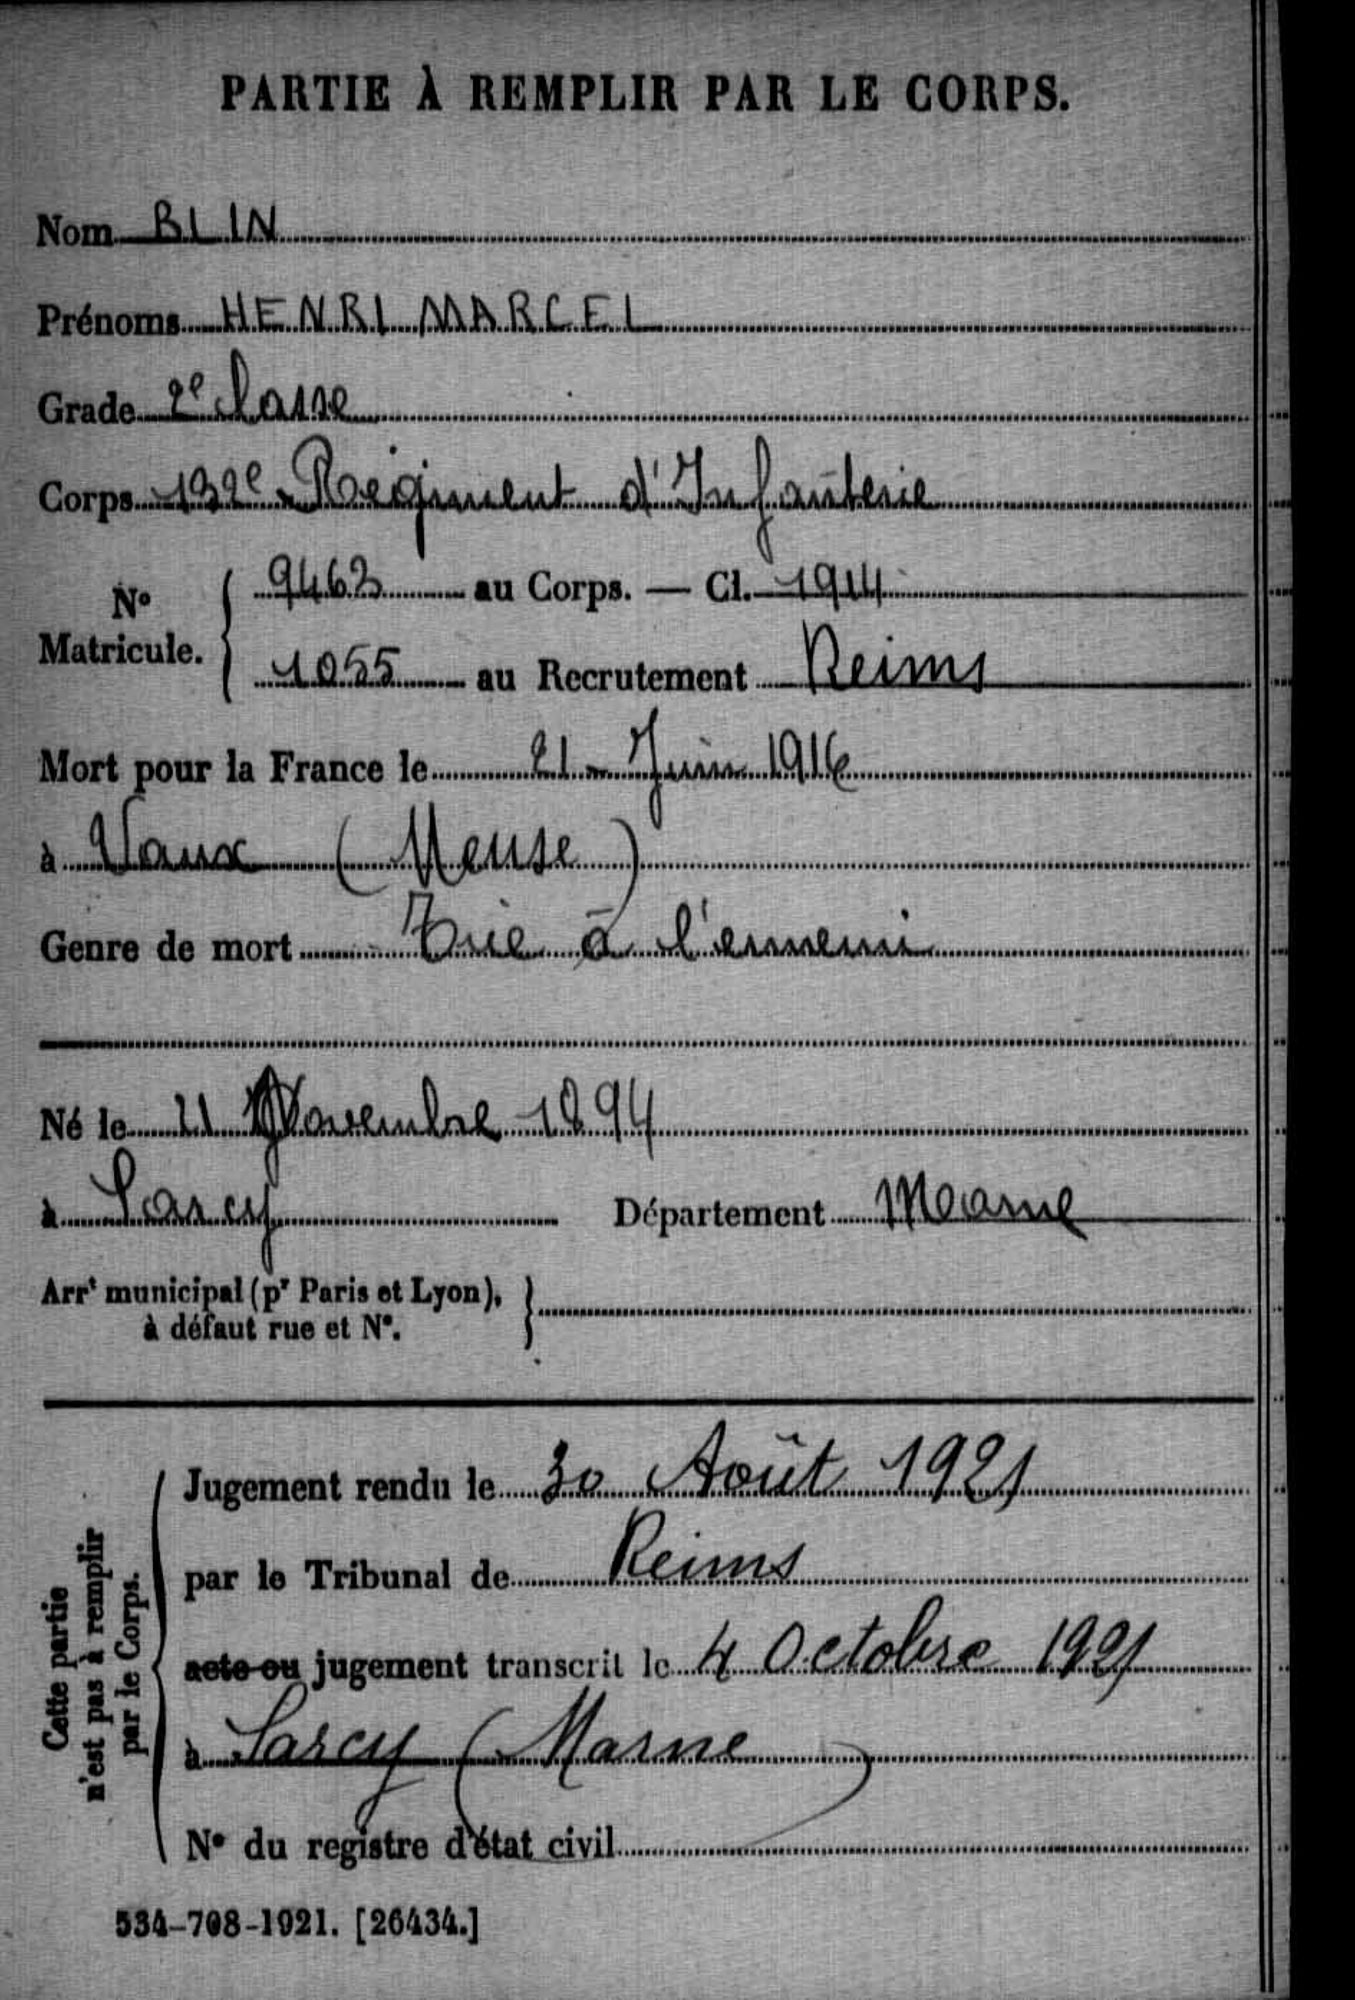 PARTIE À REMPLIR PAR LE CORPS.
Nom BLIN
Prénoms HENRI MARCEL
Grade 2e Classe
Corps 132e Régiment d'Infanterie
No Matricule. { 9462 au Corps. — Cl. 1914
1055 au Recrutement Reims
Mort pour la France le 21 - Juin 1916
à Vaux (Meuse)
Genre de mort Tué à l'ennemi
Né le 21 Novembre 1894
à Sarcy Département Marne
Arrt municipal (pr Paris et Lyon), à défaut rue et N°.
Cette partie n'est pas à remplir par le Corps.
Jugement rendu le 30 Août 1921
par le Tribunal de Reims
acte ou jugement transcrit le 4 Octobre 1921
à Sarcy (Marne)
N° du registre d'état civil
534-708-1921. [26434.]